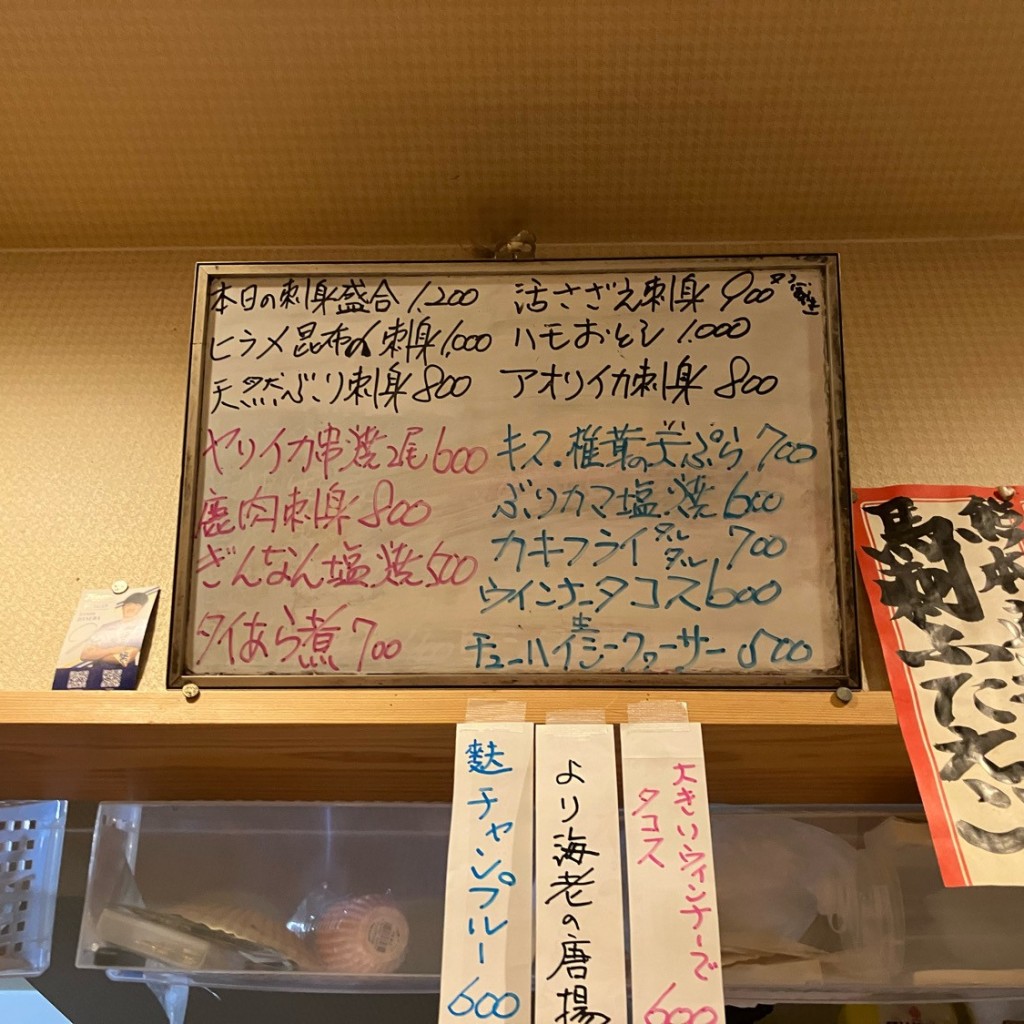 本日の刺身盛合 1,200
ヒラメ昆布〆刺身 1,000
天然ぶり刺身 800
ヤリイカ串焼2尾 600
鹿肉刺身 800
ぎんなん塩焼 500
タイあら煮 700
活さざえ刺身 900
ハモおとし 1.000
アオリイカ刺身 800
キス・椎茸の天ぷら 700
ぶりカマ塩焼 600
カキフライ タルタル 700
ウインナータコス 600
チューハイ 生シークァーサー 500
麩チャンプルー 600
より海老の唐揚
大きいウインナーで
タコス
600
馬刺